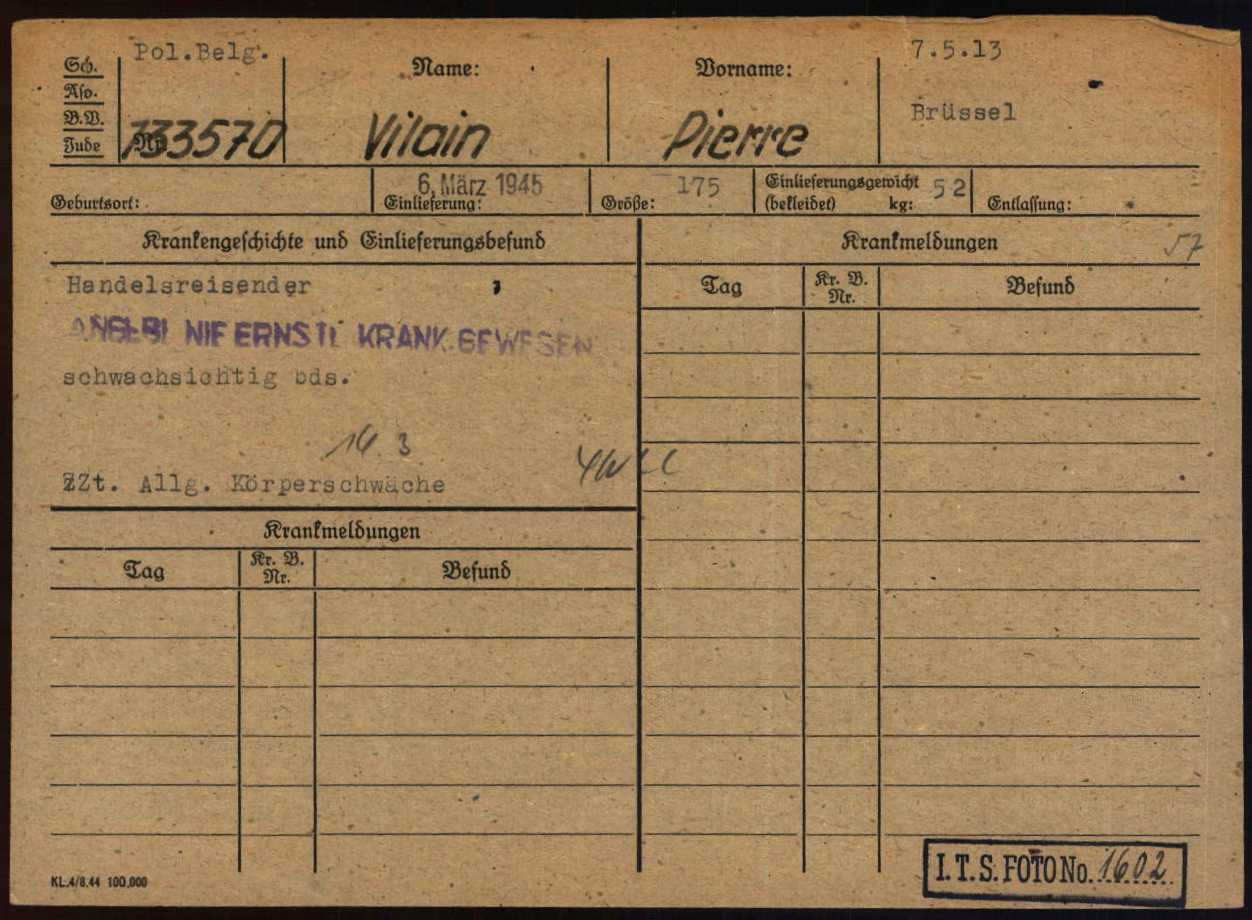 Sch.
Aso.
B.V.
Jude
Pol.Belg.
Nr.
133570
Name:
Vilain
Vorname:
Pierre
7.5.13
Brüssel
Geburtsort:
6. März 1945
Einlieferung:
Größe: 175
Einlieferungsgewicht
(bekleidet) kg: 52
Entlassung:
Krankengeschichte und Einlieferungsbefund
Handelsreisender
ANGEBL NIE ERNSTL KRANK GEWESEN
schwachsichtig bds.
14 3
ZZt. Allg. Körperschwäche
Krankmeldungen
Tag Kr. B. Nr. Befund
Krankmeldungen 57
Tag Kr. B. Nr. Befund
KL.4/8.44 100,000
I.T.S. FOTO No. 1602